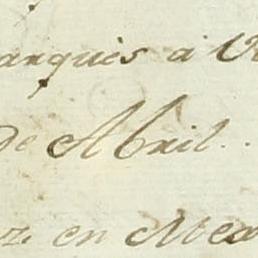 arquès a V
de Abril..
z. en Mex